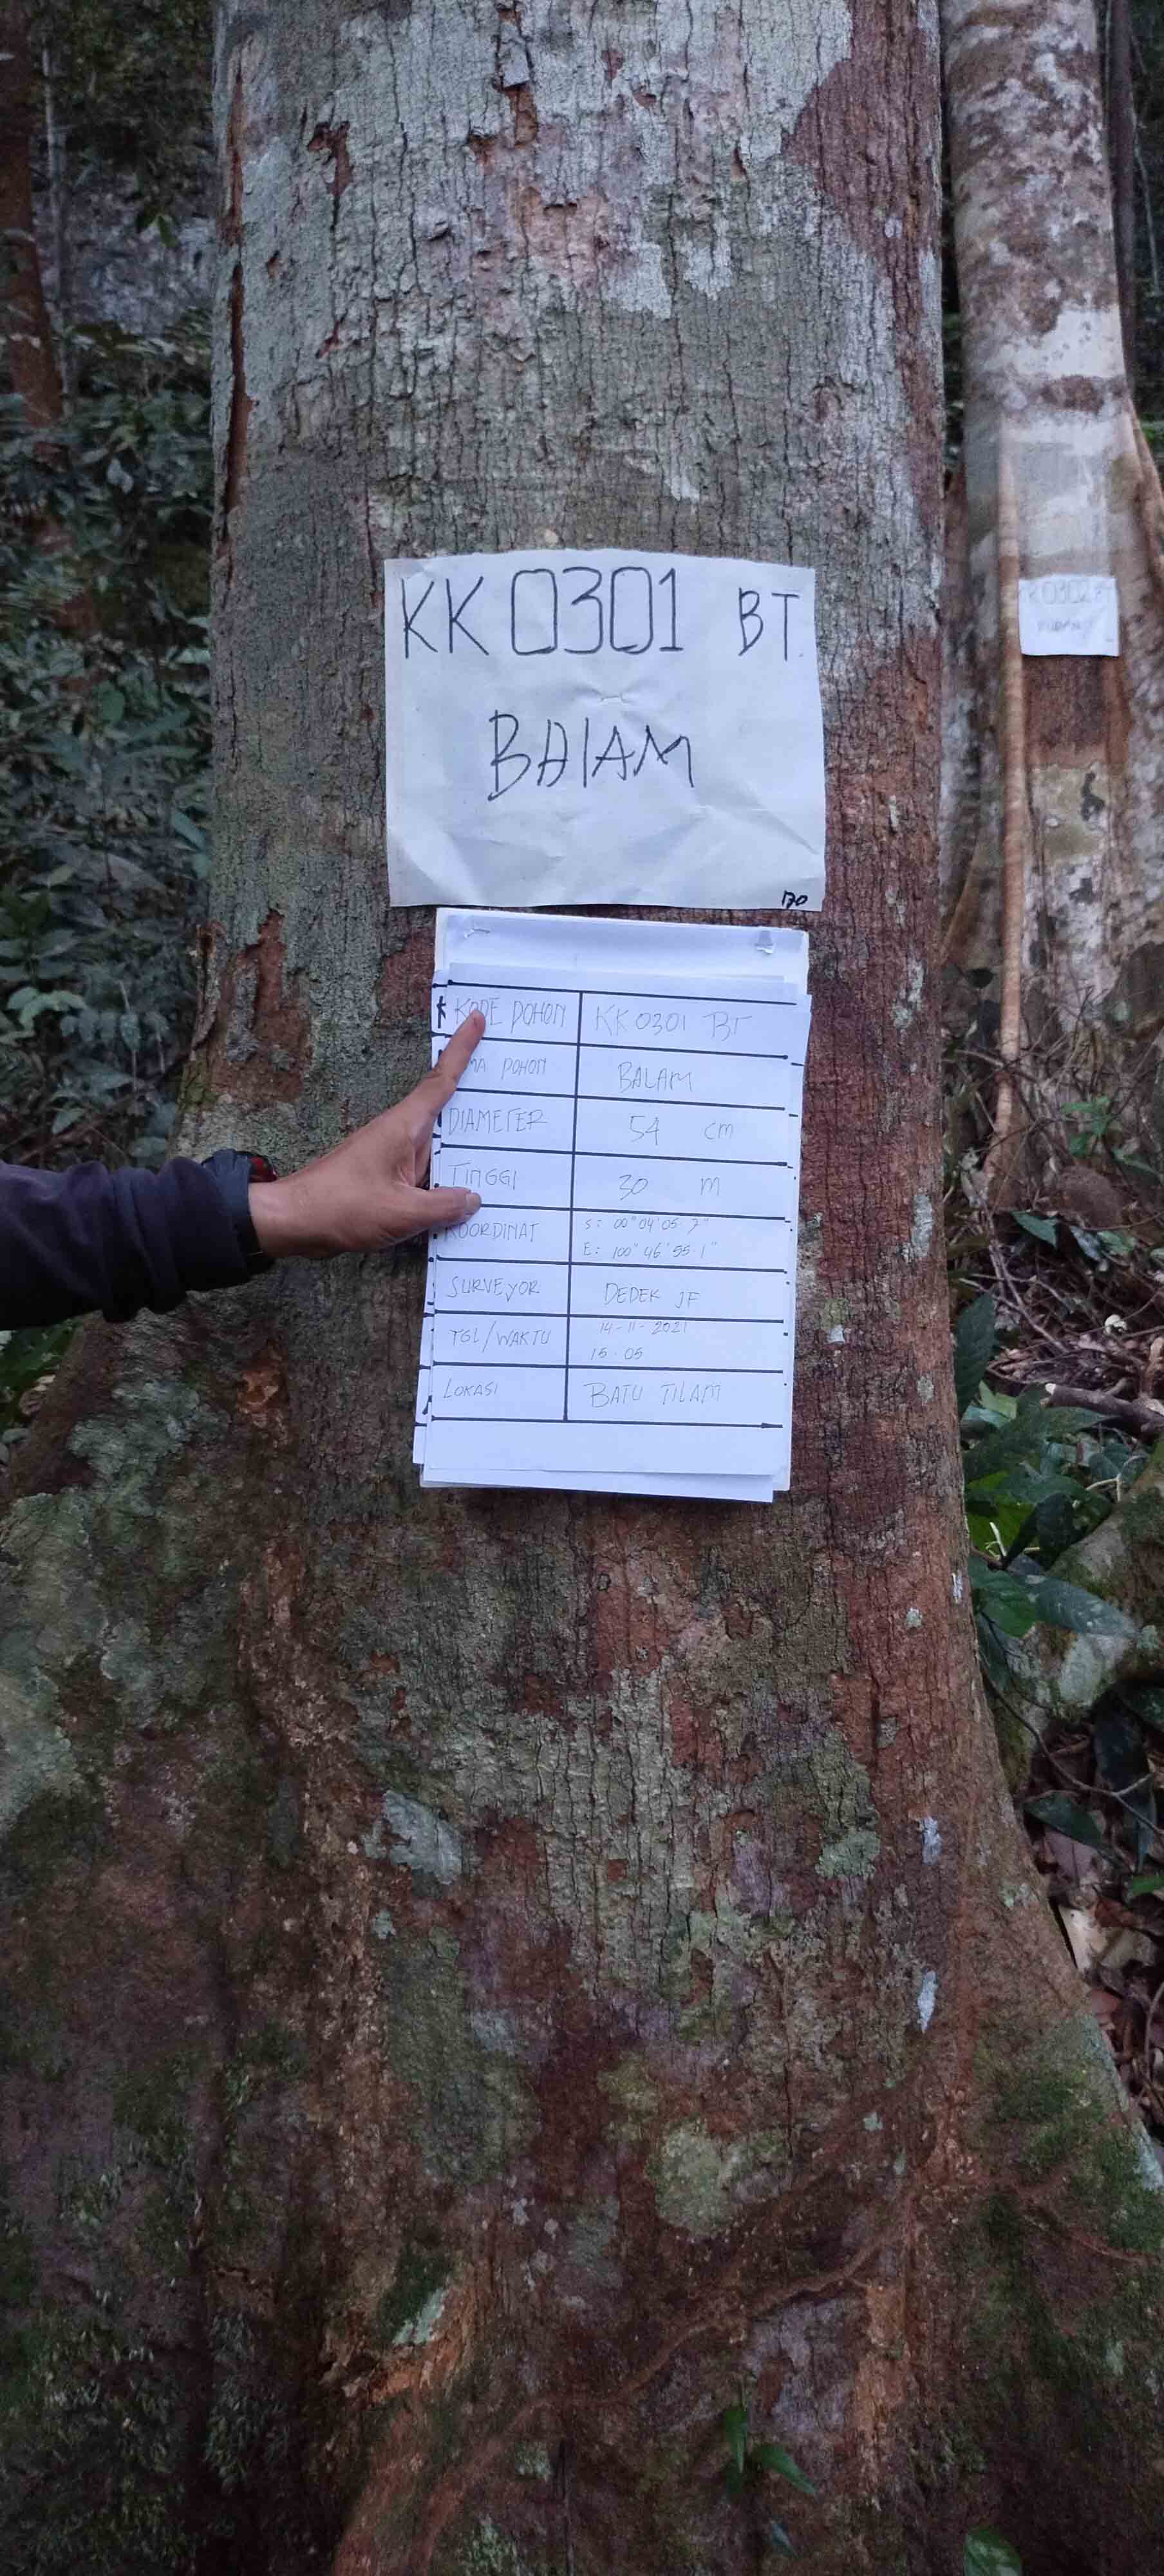 KK 0301 BT
BALAM
KODE POHON KK 0301 BT
MA POHON BALAM
DIAMETER 54 cm
TINGGI 30 m
KOORDINAT S: 00" 04' 05.7"
E: 100" 46' 55.1"
SURVEYOR DEDEK JF
TGL/WAKTU 14-11-2021
15.05
LOKASI BATU TILAM